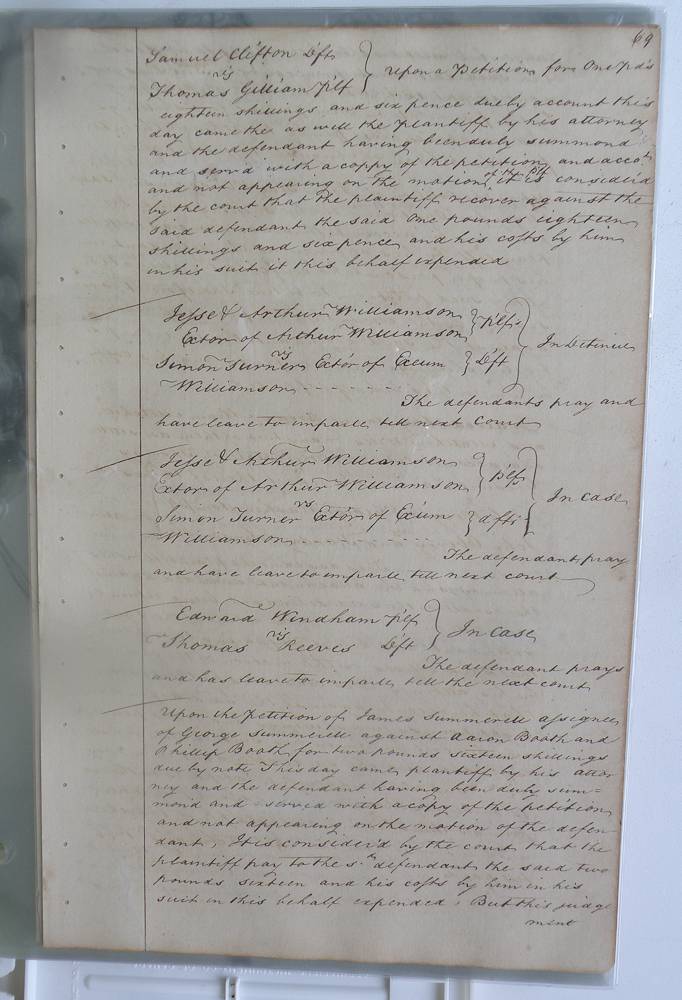 69
Samuel Clifton Dft
vs
Thomas Gilliam Plf } Upon a Petition for One Pds
eighteen shillings and six pence due by account this
day came the as well the Plantiff by his attorney
and the defendant having been duly summond
and serv'd with a coppy of the petition and accot
and not appearing on the motion of the Plf it is consider'd
by the court that the plaintiff recover against the
said defendant the said One Pounds eighteen
shillings and six pence and his costs by him
in his suit it this behalf expended
Jesse & Arthur Williamson
Extor of Arthur Williamson } Plfs
vs } In Detinue
Simon Turner Extor of Exum } Dft
Williamson - - - - - -
The defendants pray and
have leave to imparle till next Court
Jesse & Arthur Williamson
Extor of Arthur Williamson } Plfs
vs } In Case
Simon Turner Extor of Exum } dfts
Williamson - - - - - - -
The defendant pray
and have leave to imparle till next court
Edward Windham Plf
vs } In Case
Thomas Reeves Dft
The defendant prays
and has leave to imparle till the next court
Upon the Petition of James Summerell assignee
of George Summerell against Aaron Booth and
Phillip Booth for two Pounds sixteen shillings
due by note This day came plantiff by his attor
ney and the defendant having been duly sum=
mond and served with a copy of the petition
and not appearing on the motion of the defen
dant, It is consider'd by the court that the
plaintiff pay to the sd defendant the said two
Pounds sixteen and his costs by him in his
suit in this behalf expended, But this judge
ment